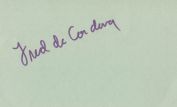 Fred de Cordova